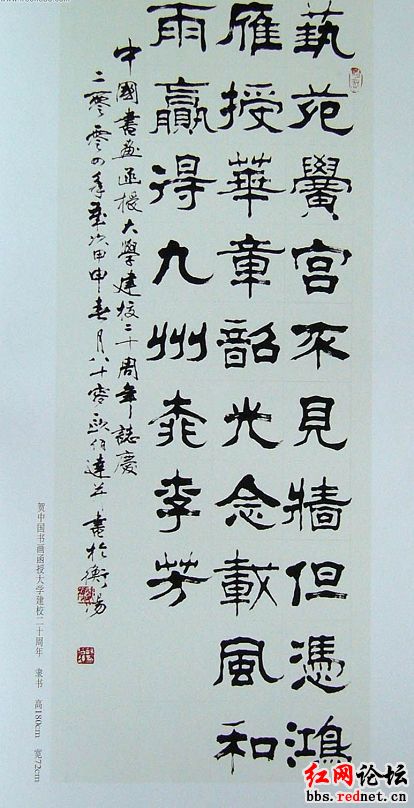 藝苑黌宮不見牆但憑鴻
雁授華章韶光念載風和
雨贏得九州桃李芳
中國書画函授大學建校二十周年誌慶
二零零四年歲次甲申春月八十零歐伯達并書於衡陽
贺中国书画函授大学建校二十周年 隶书 高180cm 宽72cm
红网论坛
bbs.rednet.cn